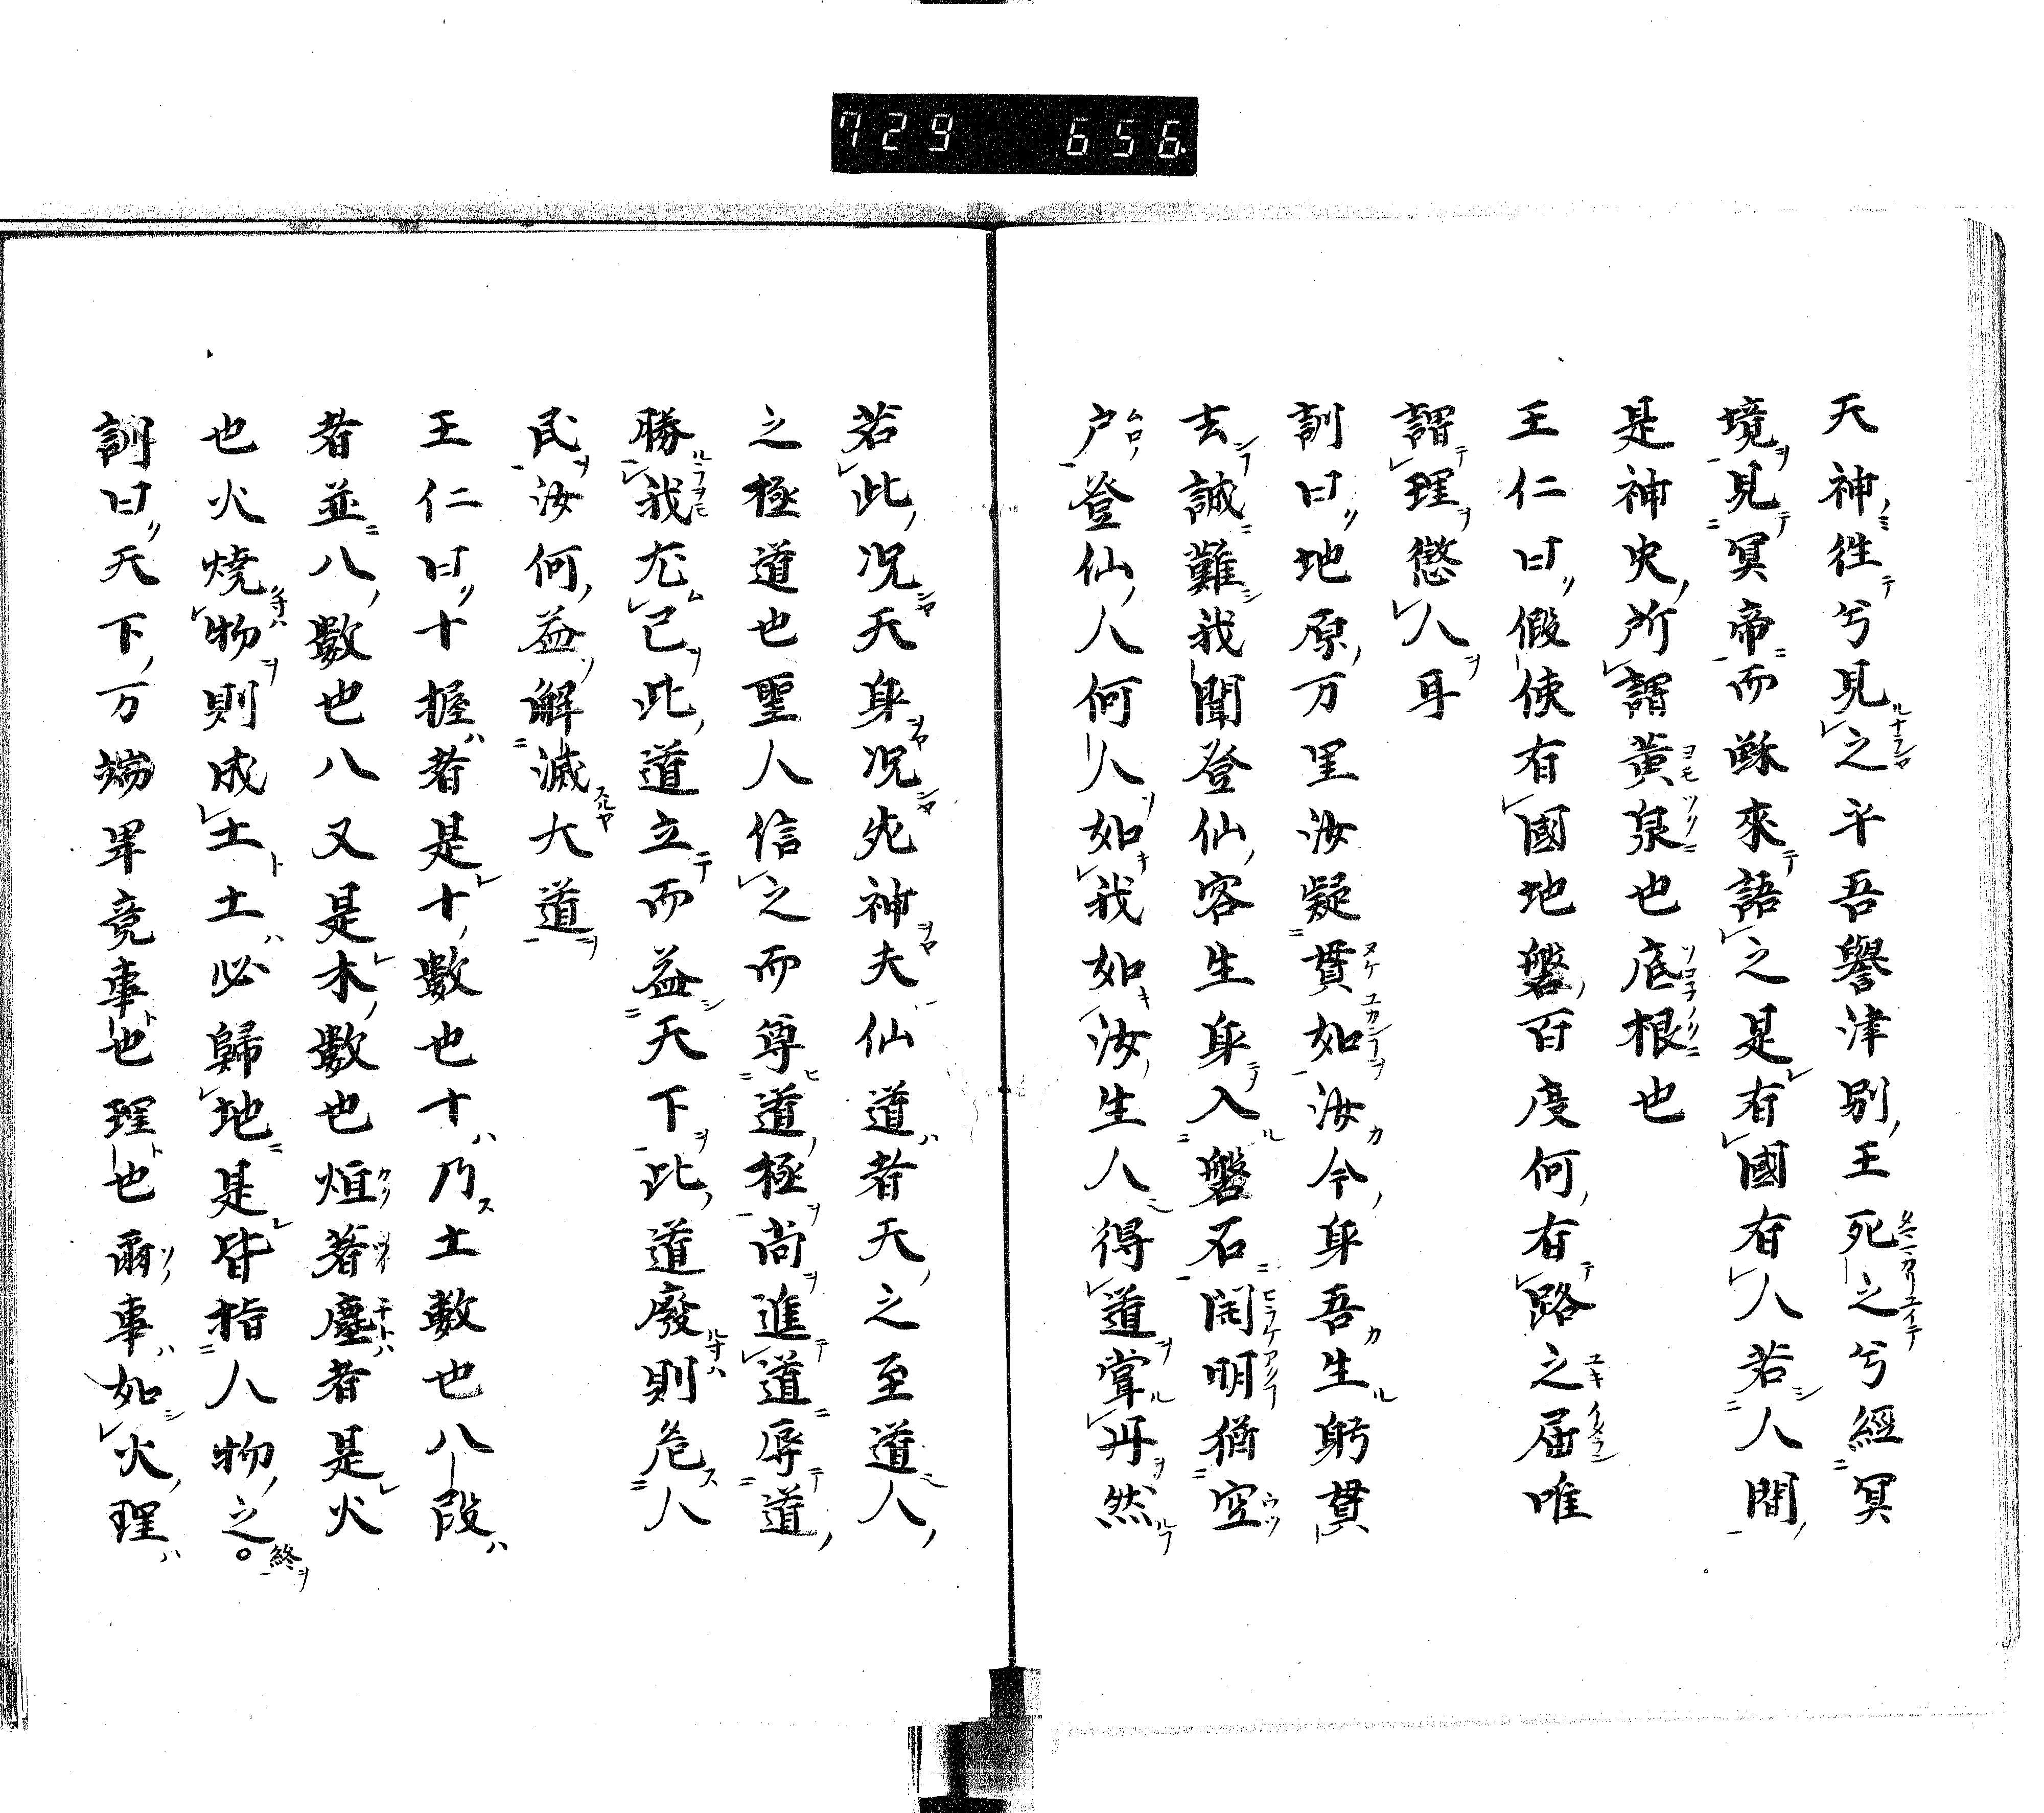 729 656
天神徃兮見之乎吾譽津別王死之兮經冥
境見冥帝而蘇來語之是有國有人若人間
是神史所謂黄泉也底根也
王仁曰假使有國地磐百度何有路之届唯
謂理愆人耳
訓曰地原万里汝疑貫如汝今身吾生躬貫
去誠難我聞登仙容生身入磐石開明猶空
戸登仙人何人如我如汝生人得道甞丹然
若此況天身況死神夫仙道者天之至道人
之極道也聖人信之而尊道極尚進道辱道
勝我尤己此道立而益天下此道廢則危人
民汝何益解滅大道
王仁曰十握者是十數也十乃土數也八段
者並八數也八又是木數也烜著塵者是火
也火焼物則成土土必歸地是皆指人物之終
訓曰天下万端畢竟事也理也爾事如火理